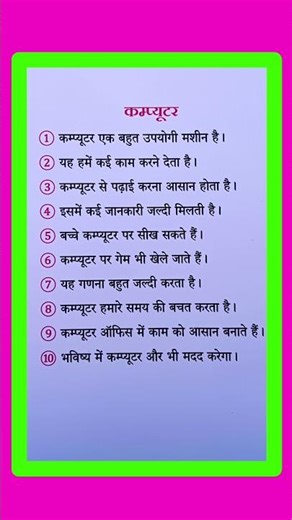 कम्प्यूटर
① कम्प्यूटर एक बहुत उपयोगी मशीन है।
② यह हमें कई काम करने देता है।
③ कम्प्यूटर से पढ़ाई करना आसान होता है।
④ इसमें कई जानकारी जल्दी मिलती है।
⑤ बच्चे कम्प्यूटर पर सीख सकते हैं।
⑥ कम्प्यूटर पर गेम भी खेले जाते हैं।
⑦ यह गणना बहुत जल्दी करता है।
⑧ कम्प्यूटर हमारे समय की बचत करता है।
⑨ कम्प्यूटर ऑफिस में काम को आसान बनाते हैं।
⑩ भविष्य में कम्प्यूटर और भी मदद करेगा।